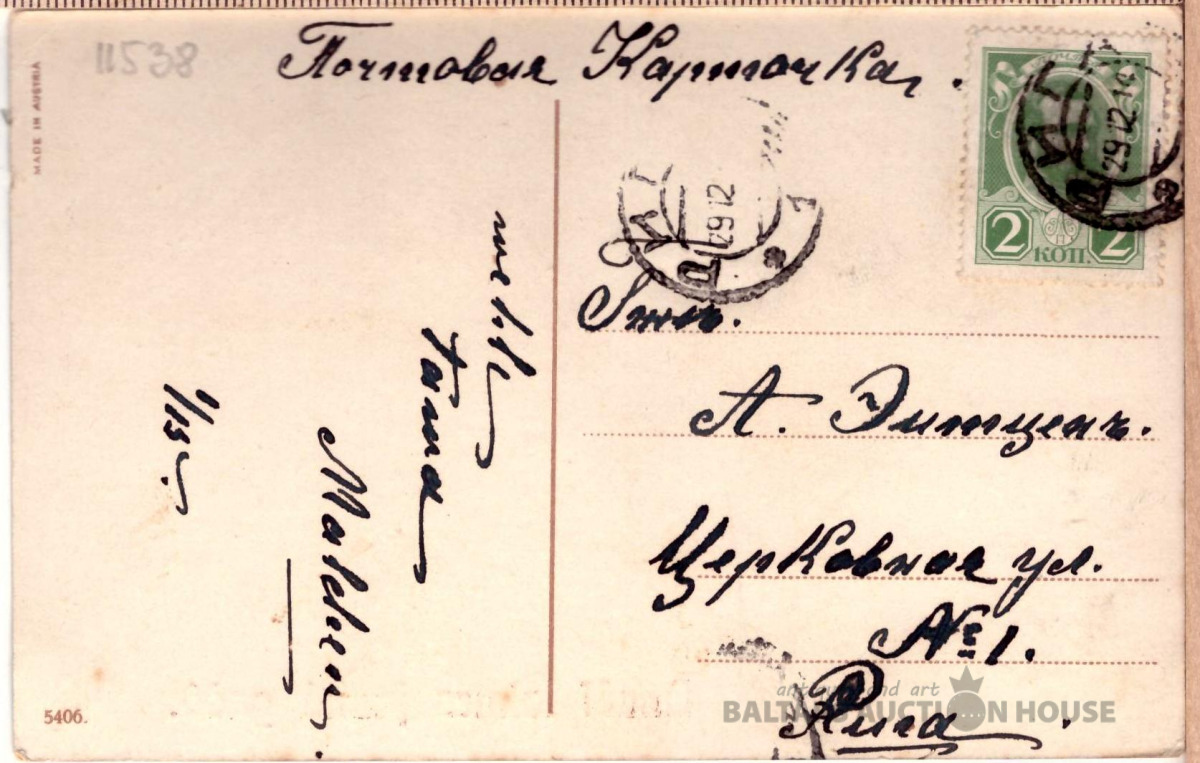 11538
MADE IN AUSTRIA
Почтовая Карточка.
29 12 14
РИГ
29 12
1
2 КОП. 2
А. Эитценъ.
Церковная ул.
№ 1.
Рига.
tama
1/15.
5406.
antique and art
BALTIC AUCTION HOUSE